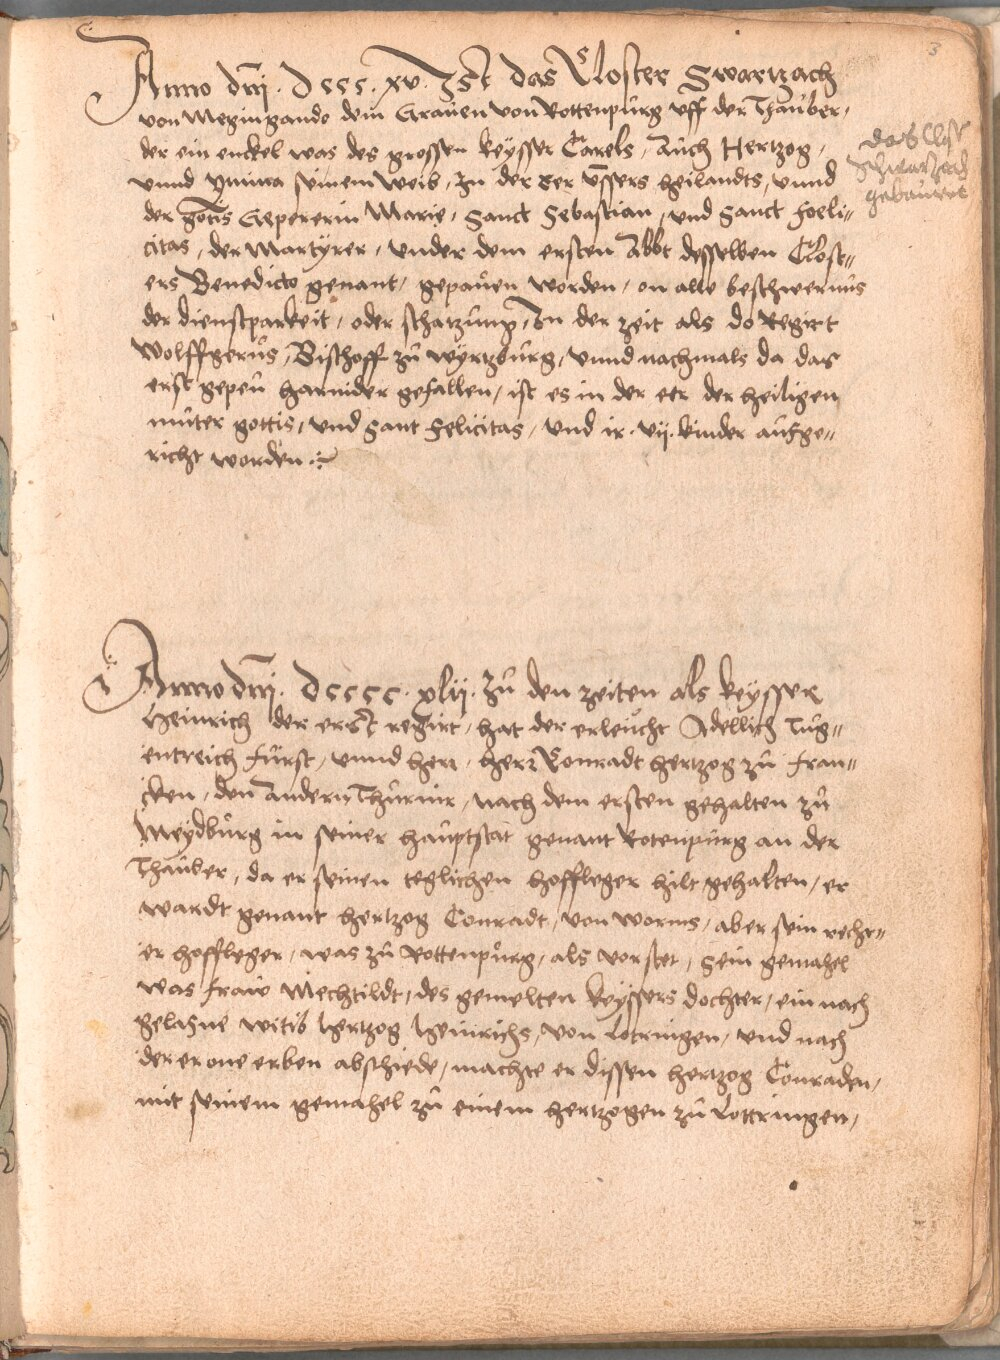 3
Anno dm̄i. Dcccc. xv. Ist das Closter Swartzach
von Megingando dem Grauen von Rottenpurg vff der Thauber,
der ein enckel was des grossen keysser Carels, Auch Hertzog,
vnnd ymma seinem weib, In der Eer vnsers heilandts, vnnd
der gottis Gepererin Marie, Sanct Sebastian, vnd Sanct Foeli„
citas, der Martyrer, vnder dem ersten Abbt desselben Clost„
ers Benedicto genant, gepauen worden, on alle beschwernus
der dienstparkeit, oder schatzung, In der zeit als do Regirt
Wolffgerus, Bischoff zu Wyrtzburg, vnnd nachmals da das
erst gepeu harnider gefallen, ist es in der eer der heiligen
muter gottis, vnd Sant Felicitas, vnd ir. vij. kinder aufge„
richt worden
das Clost
Schwartzach
gebauwet
Anno dm̄i. Dcccc. xlij. zu den zeiten als keysser
Heinrich der erst regirt, hat der erleucht Adellich tug„
entreich fürst, vnnd herr, herr Conradt hertzog zu Fran„
cken, den Andern Thurnir, nach dem ersten gehalten zu
Meydburg in seiner hauptstat genant Rotenpurg an der
Thauber, da er seinen teglichen hoffleger hilt gehalten, er
wardt genant hertzog Conradt, von worms, aber sein recht„
er hoffleger, was zu Rottenpurg, als vorstet, Sein gemahel
was fraw Mechtildt, des gemelten keyssers dochter, ein nach
gelasne witib hertzog Heinrichs, von Lotringen, vnd nach
der er one erben abschiede, machte er dissen hertzog Conraden,
mit seinem gemahel zu einem hertzogen zu Lottringen,